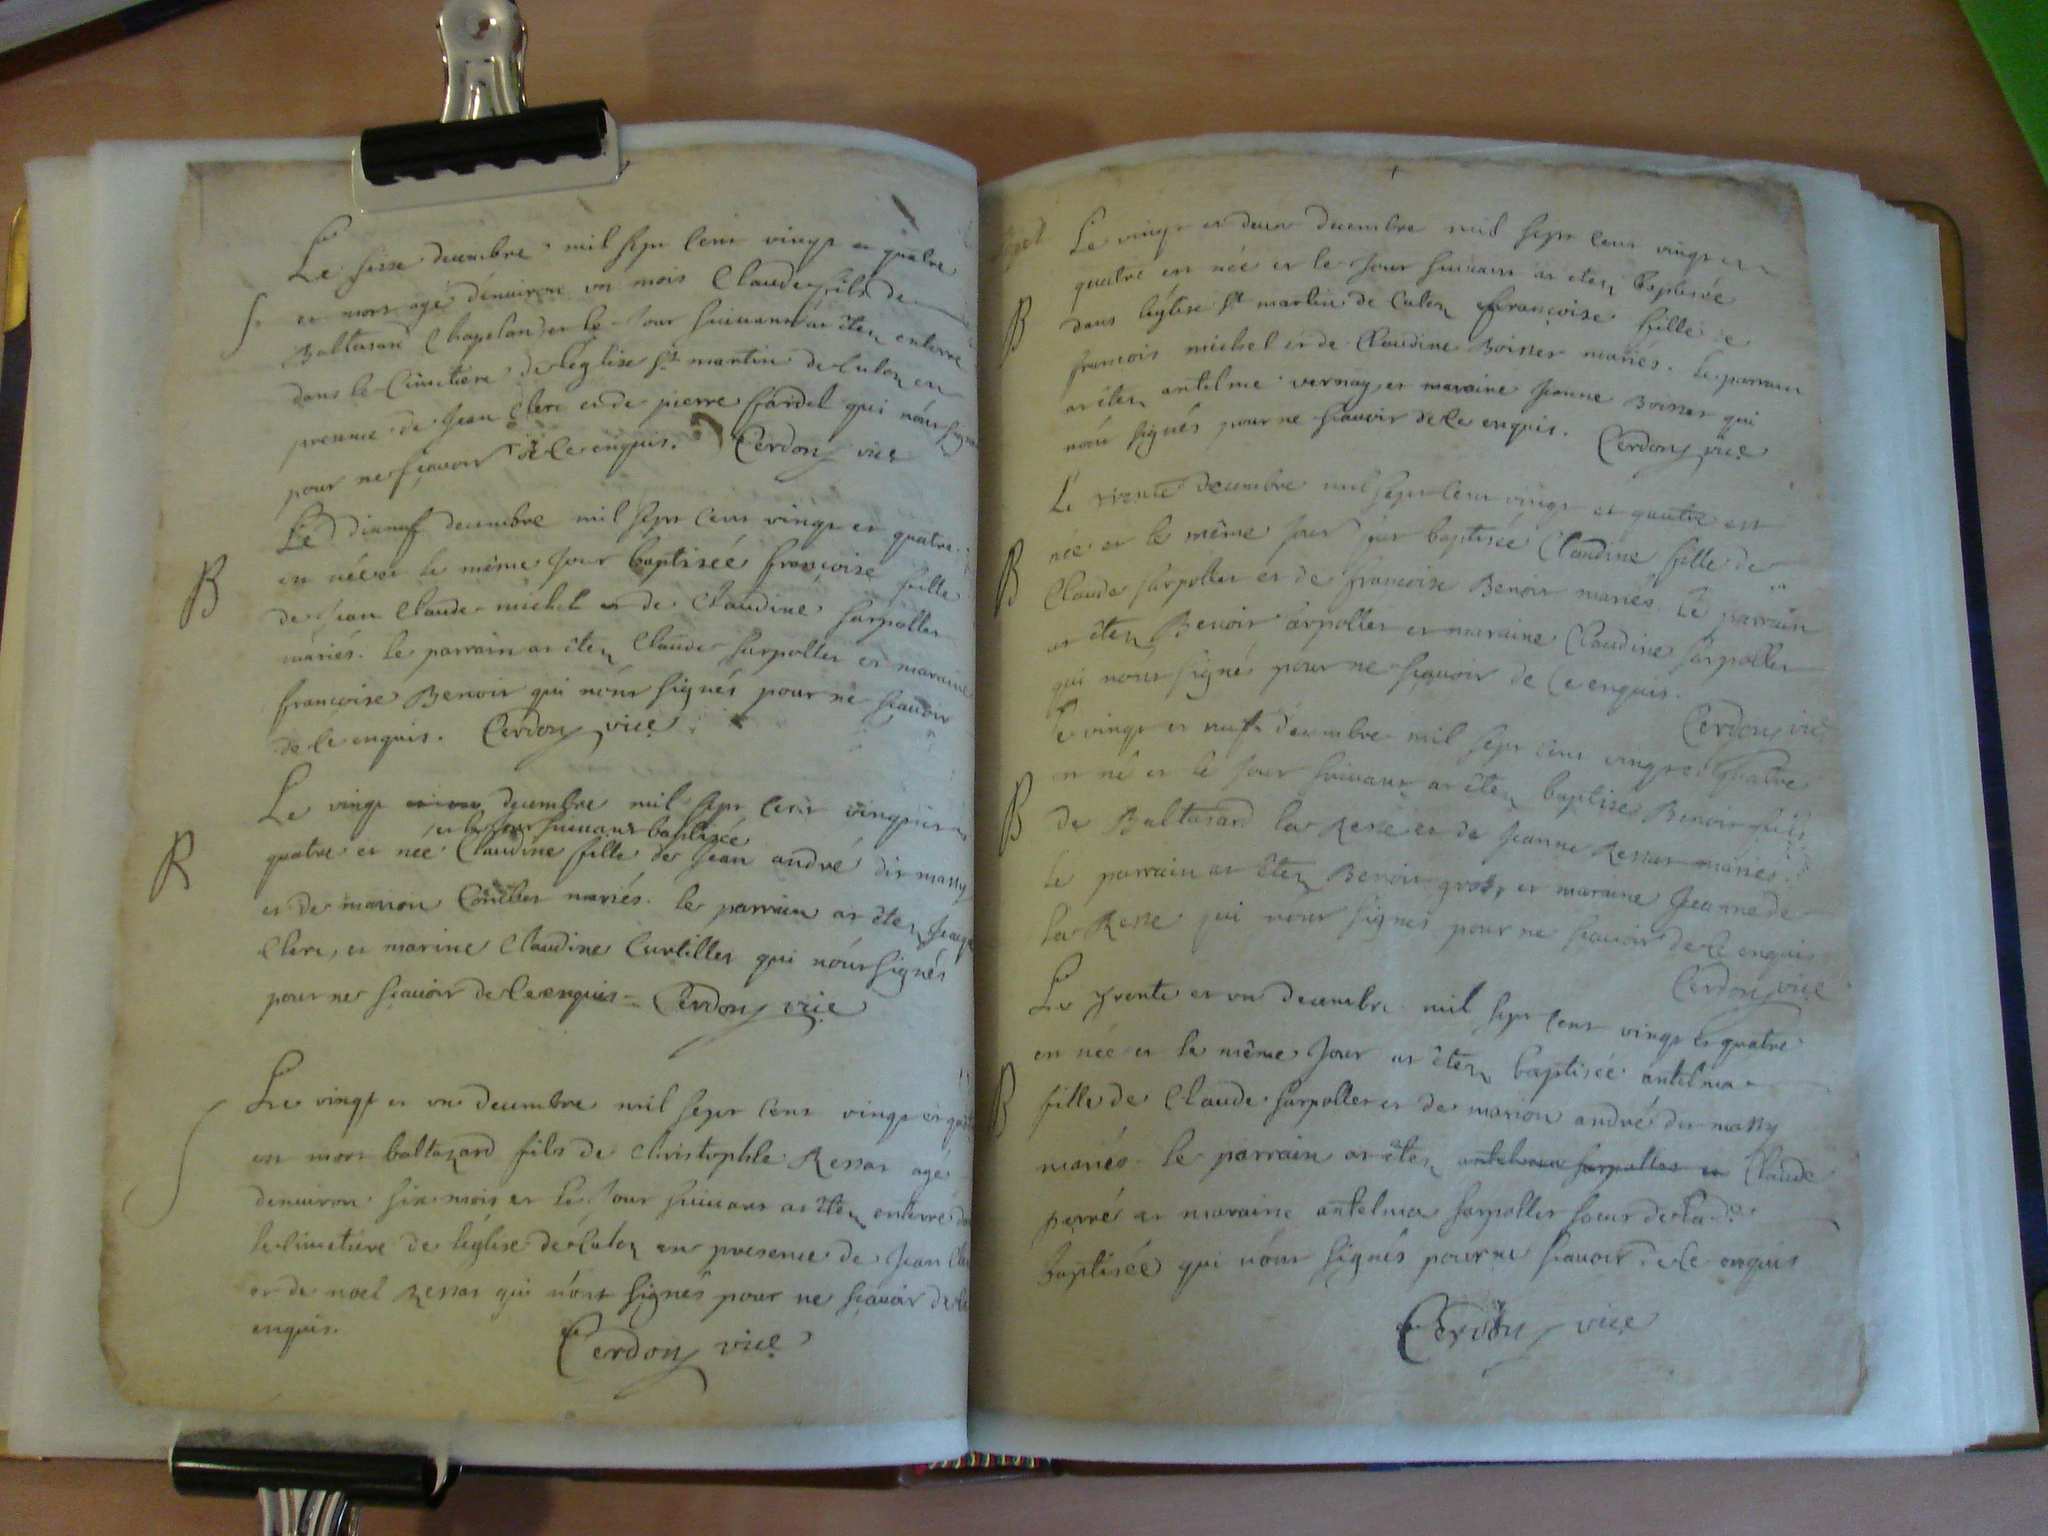 Le seise decembre mil sept cent vingt et quatre
S
est mort agé denuiron un mois Claude fils de
Baltasard Chapeland et le Jour suiuant at êtez enterré
dans le Cimetiere de léglise St martin de Culoz en
presence de Jean Clerc et de pierre fardel qui nónt signés
pour ne sçauoir de Ce enquis. Cerdon vice
Le dixneuf decembre mil sept cent vingt et quatre
B
est née et le même Jour baptisée françoise fille
de Jean Claude michel et de Claudine Surpollet
mariés. le parrain at êtez Claude surpollet et maraine
francoise Benoit qui nónt signés pour ne sçauoir
de Ce enquis. Cerdon vice
Le vingt decembre mil sept Cent vingt et
et le Jour suiuant baptisée
B
quatre et née Claudine fille de Jean andré dit massy
et de marion mariés. le parrain at êtez
Clerc, et marine Claudine Curtillet qui nónt signés
pour ne sçauoir de Ce enquis = Cerdon vice
Le vingt et un decembre mil sept Cent vingt et
S
est mort baltazard fils de Christophle Ressat agé
denuiron six mois et le Jour suiuant at êtez enterré
le Cimetiere de léglise de Culoz en presence de Jean
et de noel Ressat qui nónt signés pour ne sçauoir de Ce
enquis.
Cerdon vice
Le vingt et deux decembre mil sept Cent vingt et
quatre est née et le Jour suiuant at êtez baptisée
B
dans léglise St martin de Culoz françoise fille de
francois michel et de Claudine Boisset mariés. le parrain
at êtez antelme vernay et maraine Jeanne Boisset qui
nónt signés pour ne sçauoir de Ce enquis. Cerdon vice
Le trente decembre mil sept Cent vingt et quatre est
B
née et le même Jour baptisée Claudine fille de
Claude surpollet et de francoise Benoit mariés. Le parrain
at êtez Benoit sarpollet et maraine Claudine sarpollet
qui nónt signés pour ne sçauoir de Ce enquis.
Cerdon vice
le vingt et neuf decembre mil sept Cent vingt et quatre
est né et le Jour suiuant at êtez baptise Benoit fils
B
de Baltasard la Resse et de Jeanne Ressat mariés.
le parrain at êtez Benoit et maraine Jeanne de
la Resse qui nónt signés pour ne sçauoir de Ce enquis
Cerdon vice
Le trente et un decembre mil sept Cent vingt et quatre
est née et le même Jour at êtez baptisée antelma
B
fille de Claude surpollet et de marion andré dit massy
mariés. le parrain at êtez antelma sarpollet et Claude
perré et maraine antelma sarpollet soeur de la de
baptisée qui nónt signés pour ne sçauoir de Ce enquis
Cerdon vice